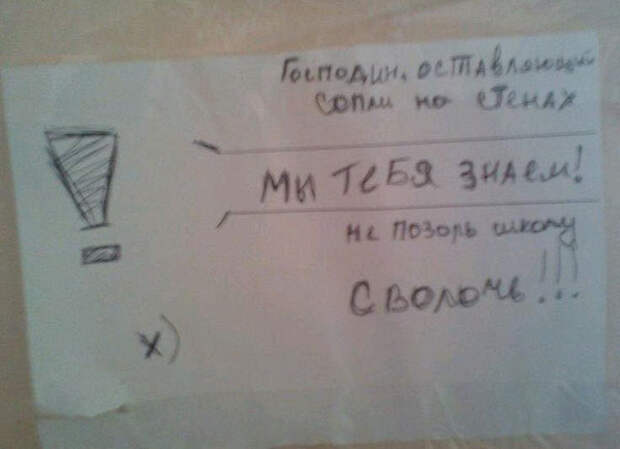 Господин, оставляющий
сопли на стенах
Мы тебя знаем!
не позорь школу
Сволочь!!!
х)